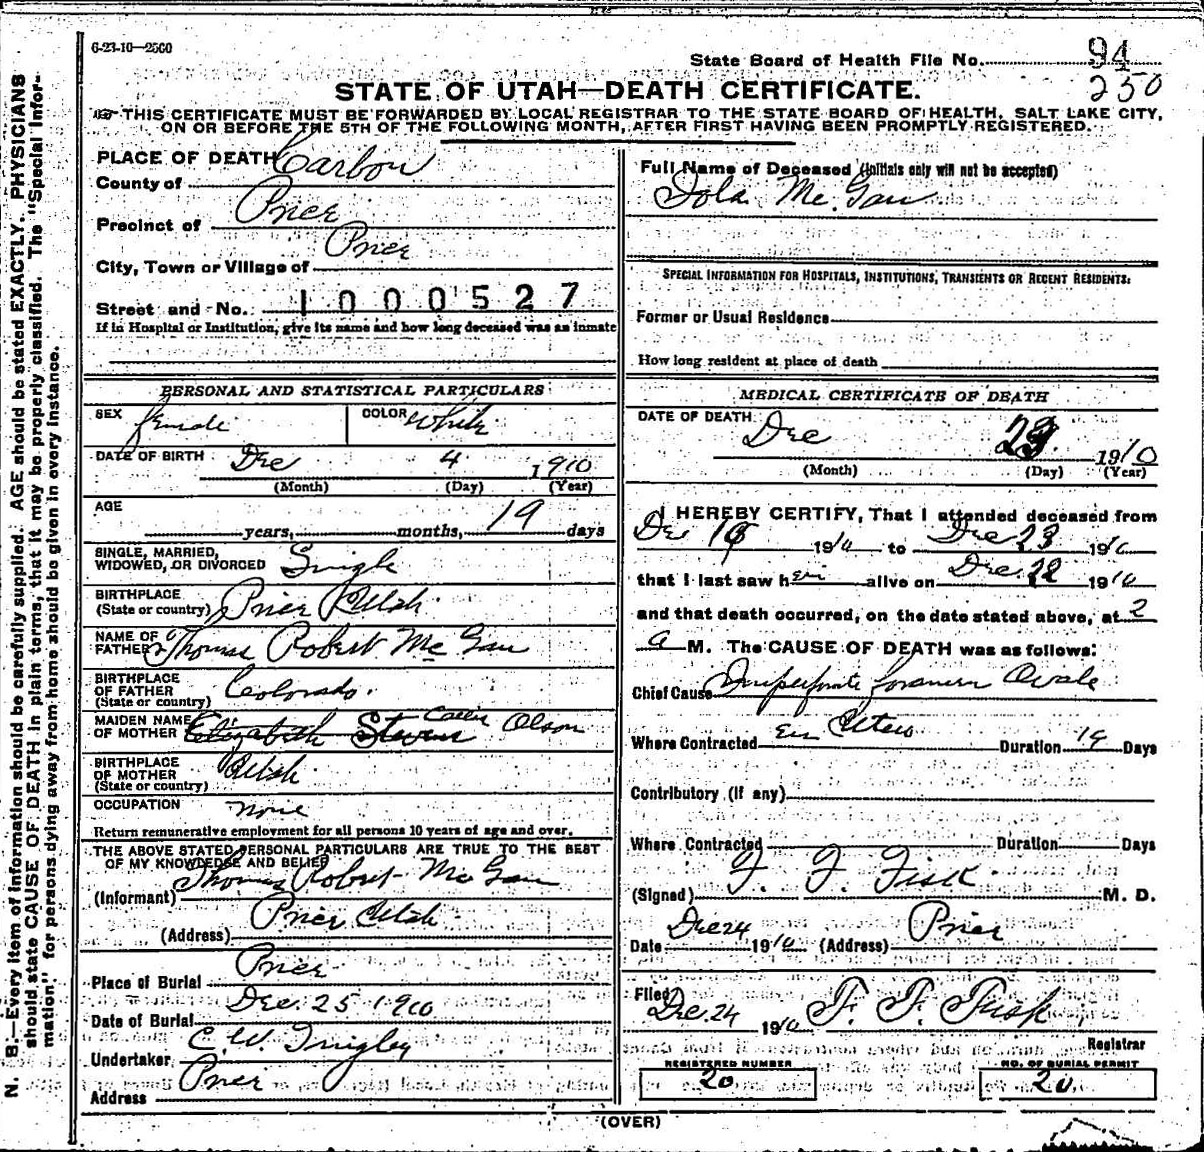 6-23-10—2500
State Board of Health File No. 94
250
STATE OF UTAH—DEATH CERTIFICATE.
THIS CERTIFICATE MUST BE FORWARDED BY LOCAL REGISTRAR TO THE STATE BOARD OF HEALTH, SALT LAKE CITY,
ON OR BEFORE THE 5TH OF THE FOLLOWING MONTH, AFTER FIRST HAVING BEEN PROMPTLY REGISTERED.
N. B.—Every item of information should be carefully supplied. AGE should be stated EXACTLY. PHYSICIANS
should state CAUSE OF DEATH in plain terms, that it may be properly classified. The "Special Infor-
mation" for persons dying away from home should be given in every instance.
PLACE OF DEATH
County of Carbon
Precinct of Price
City, Town or Village of Price
Street and No. 1000527
If in Hospital or Institution, give its name and how long deceased was an inmate
PERSONAL AND STATISTICAL PARTICULARS
SEX female COLOR White
DATE OF BIRTH Dec 4 1910
(Month) (Day) (Year)
AGE
years, months, 19 days
SINGLE, MARRIED,
WIDOWED, OR DIVORCED Single
BIRTHPLACE
(State or country) Price Utah
NAME OF
FATHER Thomas Robert McGau
BIRTHPLACE
OF FATHER
(State or country) Colorado.
MAIDEN NAME
OF MOTHER Elizabeth Stevens Callie Olson
BIRTHPLACE
OF MOTHER
(State or country) Utah
OCCUPATION none
Return remunerative employment for all persons 10 years of age and over.
THE ABOVE STATED PERSONAL PARTICULARS ARE TRUE TO THE BEST
OF MY KNOWLEDGE AND BELIEF
(Informant) Thomas Robert McGau
(Address) Price Utah
Place of Burial Price
Date of Burial Dec. 25 1910
Undertaker C. W.
Address Price
Full Name of Deceased (Initials only will not be accepted)
Iola McGau
SPECIAL INFORMATION FOR HOSPITALS, INSTITUTIONS, TRANSIENTS OR RECENT RESIDENTS:
Former or Usual Residence
How long resident at place of death
MEDICAL CERTIFICATE OF DEATH
DATE OF DEATH Dec 23 1910
(Month) (Day) (Year)
I HEREBY CERTIFY, That I attended deceased from
Dec 1910 to Dec 23 1910
that I last saw her alive on Dec. 22 1910
and that death occurred, on the date stated above, at 2
a M. The CAUSE OF DEATH was as follows:
Chief Cause Imperforate foramen Ovale
Where Contracted En Utero Duration 19 Days
Contributory (if any)
Where Contracted Duration Days
(Signed) F. F. Fisk M. D.
Date Dec 24 1910 (Address) Price
Filed Dec. 24 1910 F. F. Fisk
Registrar
REGISTERED NUMBER
20
NO. OF BURIAL PERMIT
20
(OVER)